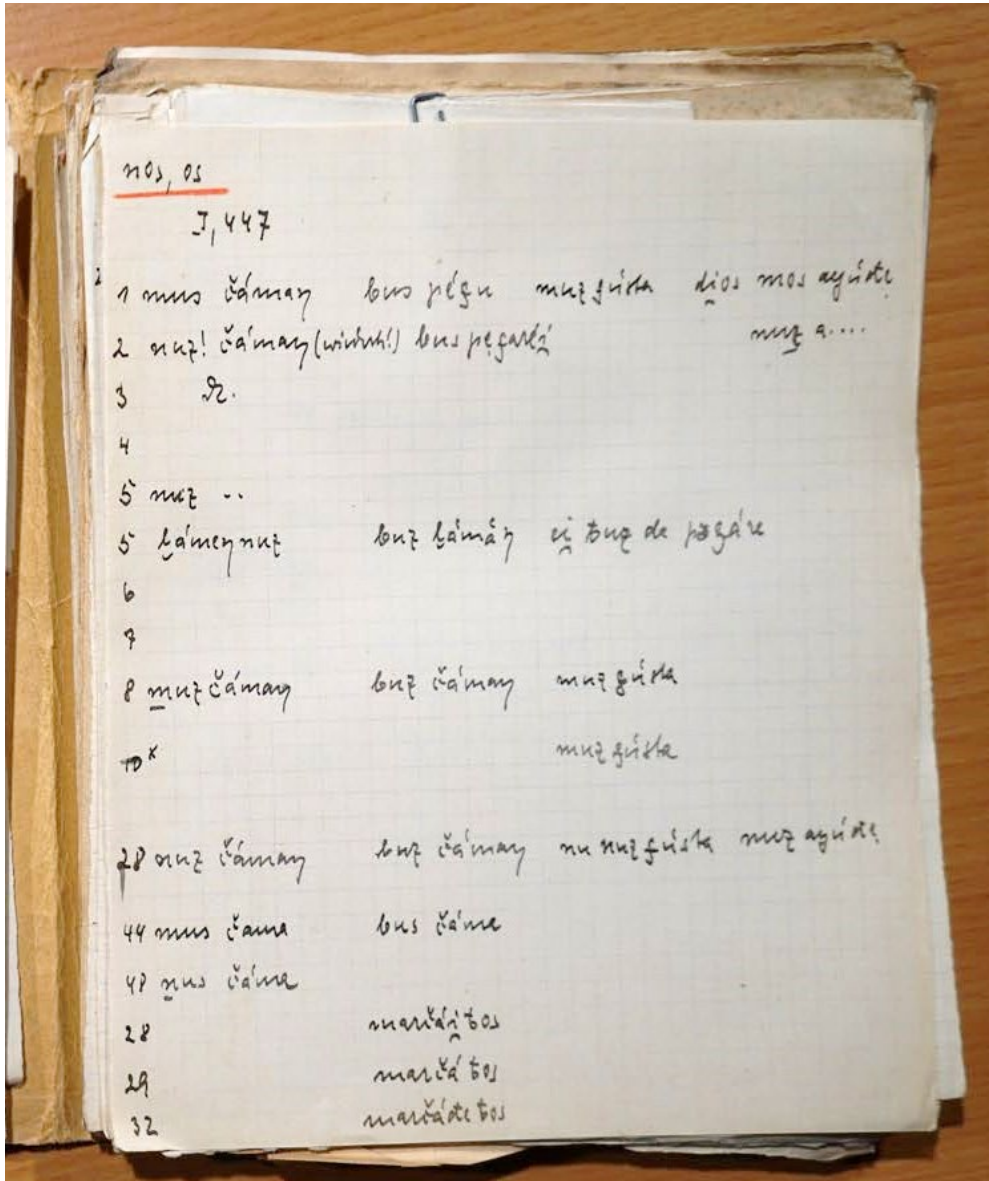 nos, os
I, 447
1 mus čámaŋ bus pégu muz gústa di̯os mos ayúde̜
2 nuz! čámaŋ (wiederh!) bus pe̜garéi̯ nuz̯ a....
3 Id.
4
5 nuz ..
5 l̯ámeŋ nuz buz l̯ámåŋ ei̯ ƀuz de pəgáre
6
7
8 muz čámaŋ buz čámaŋ muz gústa
10 x muz gústa
28 nuz čámaŋ buz čámaŋ nu nuz gústa nuz ayúde̜
44 mus čama bus čáma
48 nus čáma
28 marčái̯ ƀos
29 marčá ƀos
32 marčáde ƀos